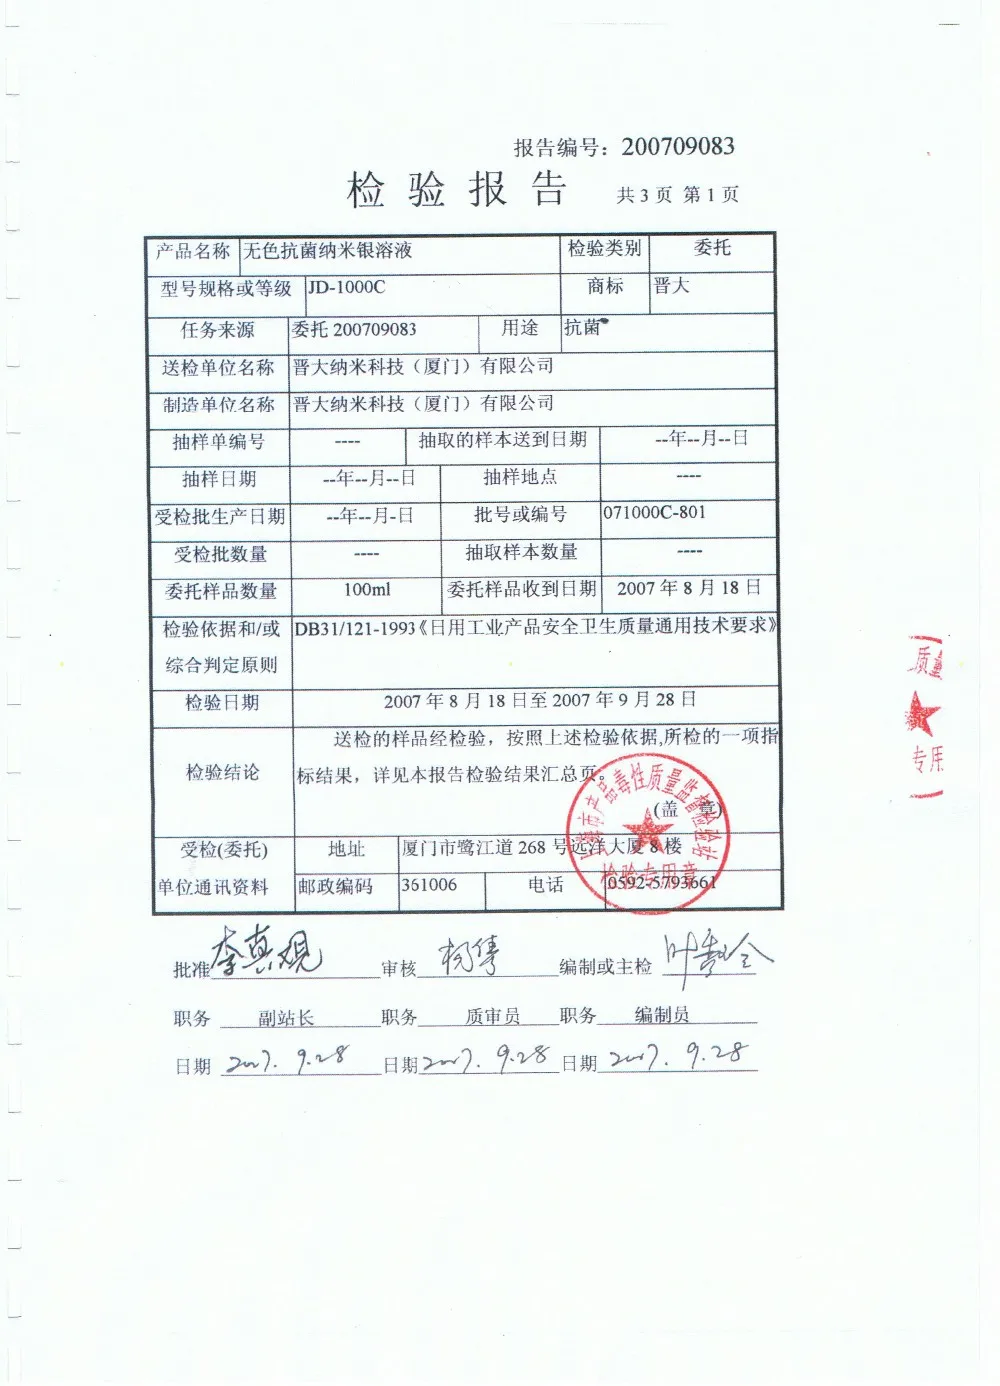 报告编号：200709083
检验报告 共 3 页 第 1 页
产品名称 无色抗菌纳米银溶液 检验类别 委托
型号规格或等级 JD-1000C 商标 晋大
任务来源 委托 200709083 用途 抗菌
送检单位名称 晋大纳米科技（厦门）有限公司
制造单位名称 晋大纳米科技（厦门）有限公司
抽样单编号 ---- 抽取的样本送到日期 --年--月--日
抽样日期 --年--月--日 抽样地点 ----
受检批生产日期 --年--月-日 批号或编号 071000C-801
受检批数量 ---- 抽取样本数量 ----
委托样品数量 100ml 委托样品收到日期 2007 年 8 月 18 日
检验依据和/或 DB31/121-1993《日用工业产品安全卫生质量通用技术要求》
综合判定原则
检验日期 2007 年 8 月 18 日至 2007 年 9 月 28 日
送检的样品经检验，按照上述检验依据,所检的一项指
检验结论 标结果，详见本报告检验结果汇总页。
(盖 章)
上海市产品毒性质量监督检验站
检验专用章
受检(委托) 地址 厦门市鹭江道 268 号远洋大厦 8 楼
单位通讯资料 邮政编码 361006 电话 0592-5793661
批准 李真观 审核 编制或主检
职务 副站长 职务 质审员 职务 编制员
日期 2007. 9.28 日期 2007. 9.28 日期 2007. 9.28
质量
专用